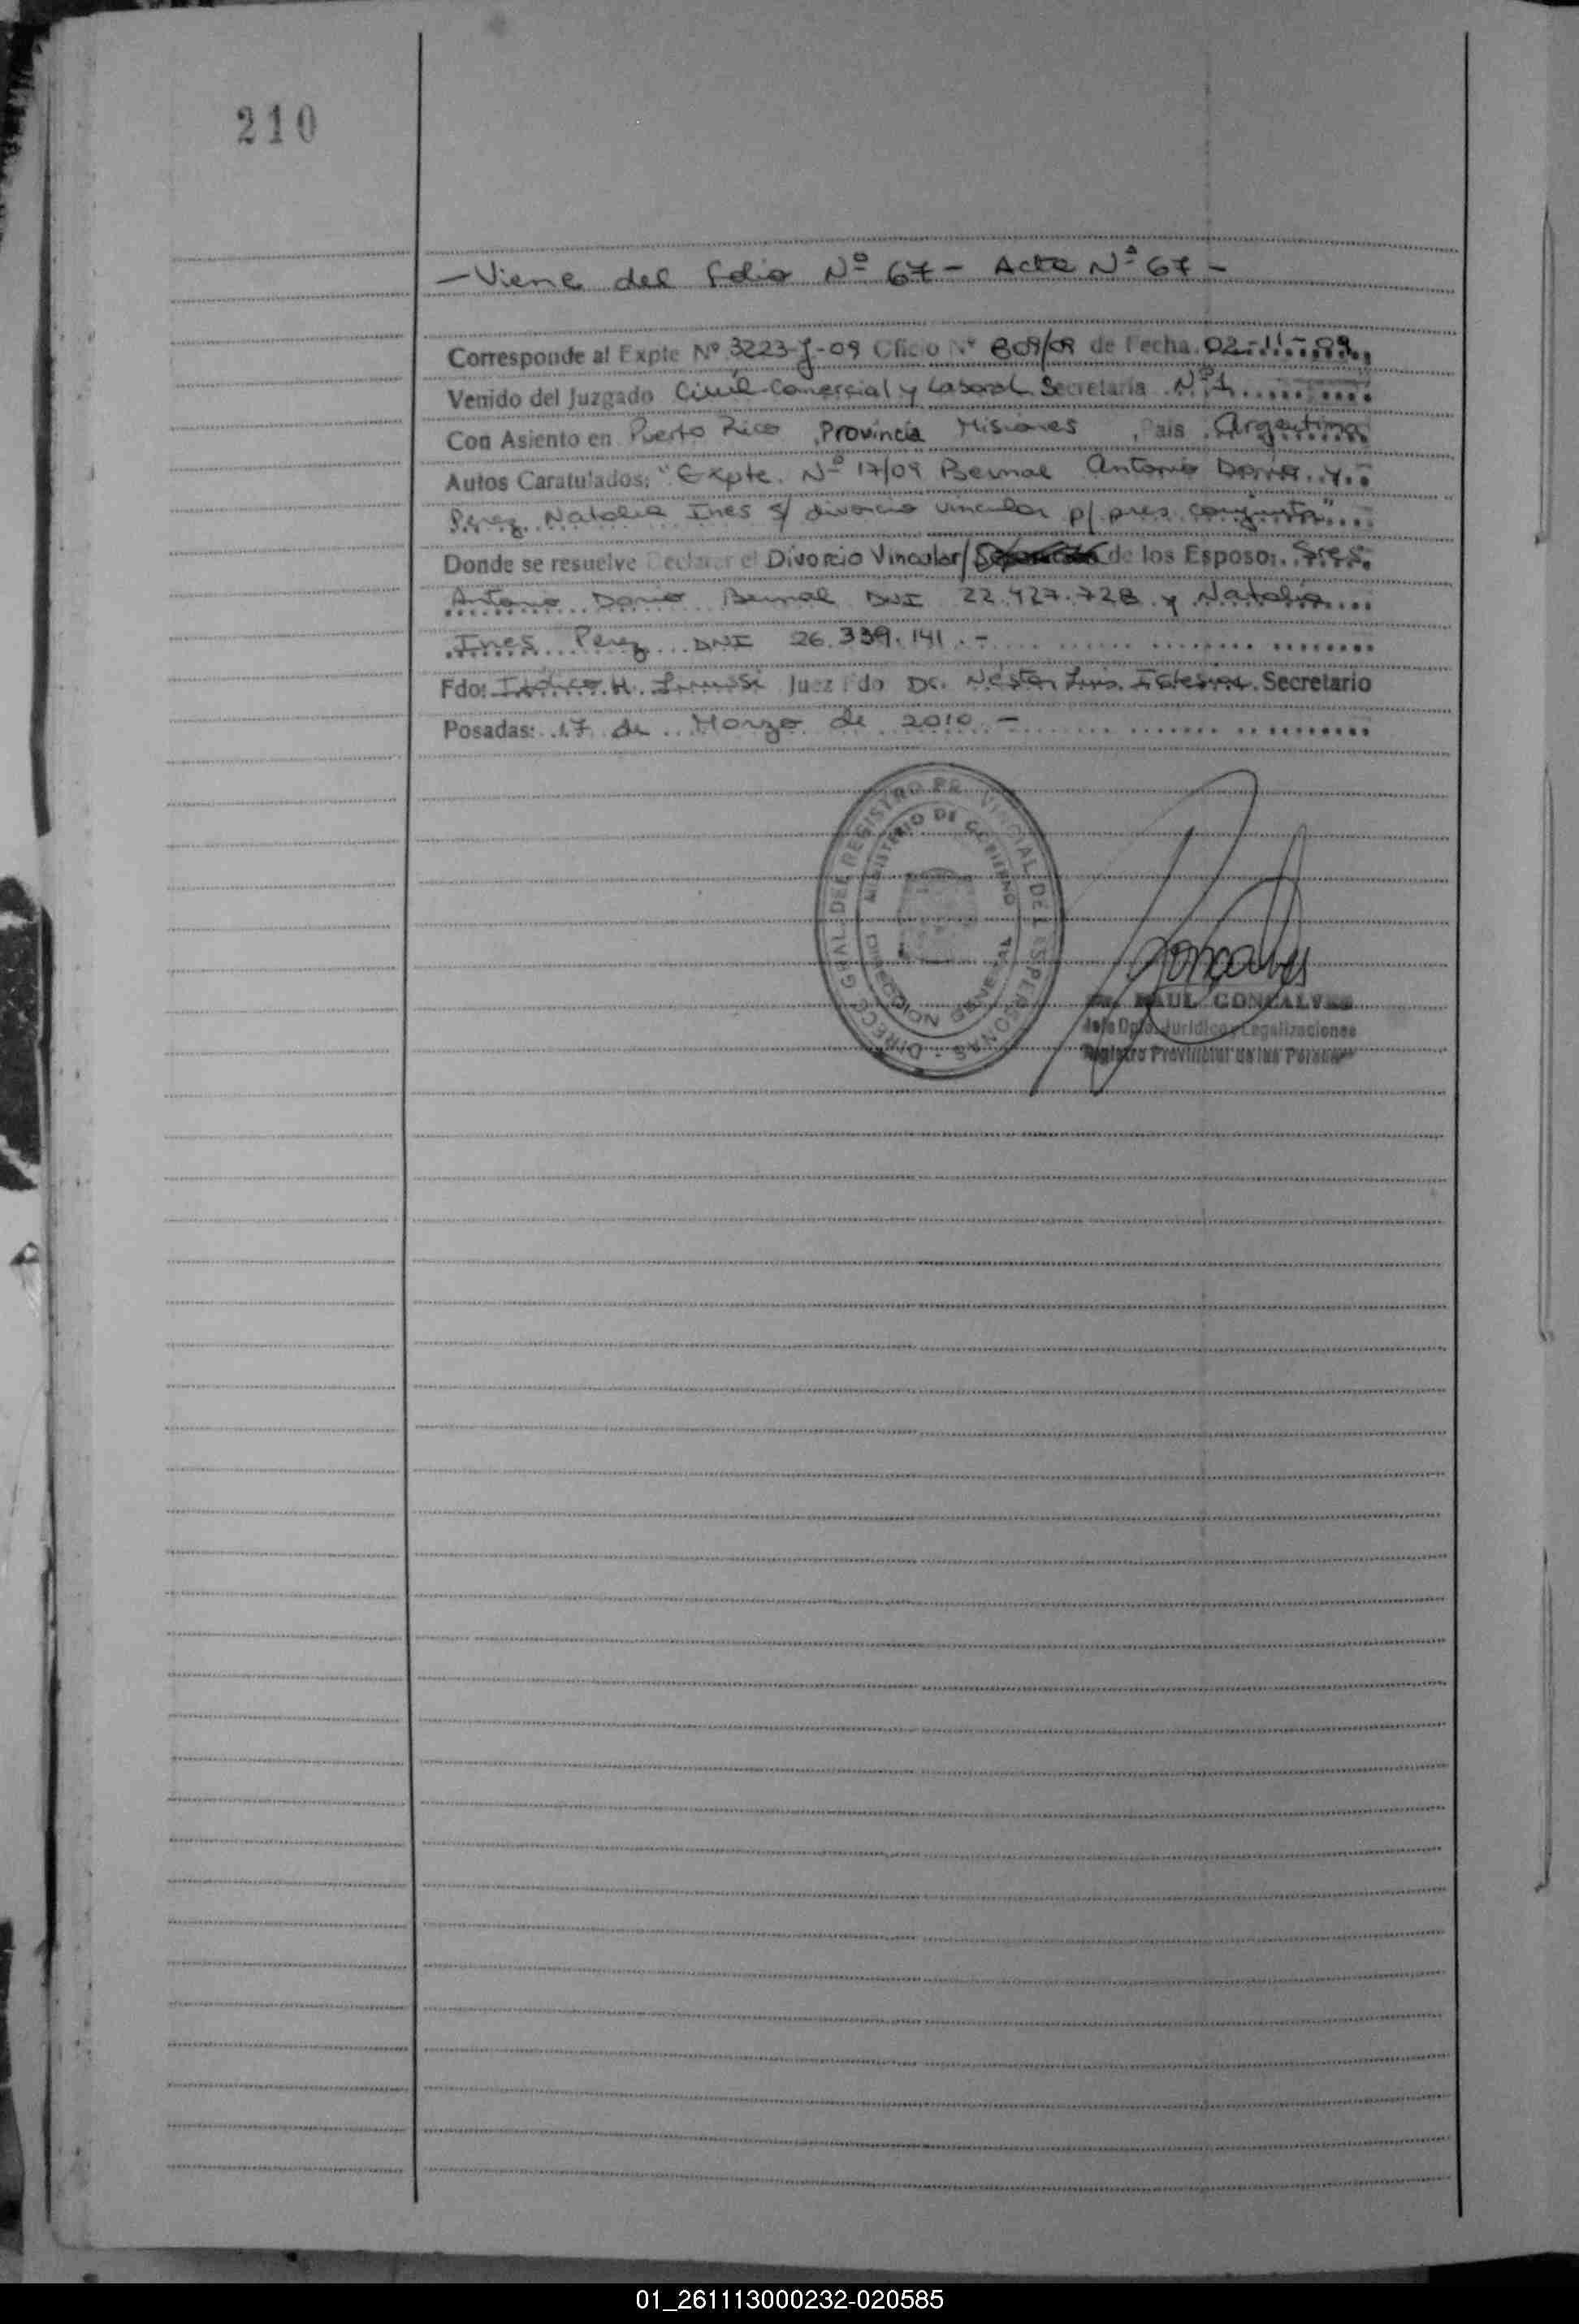 210
- Viene del folio Nº 67 - Acta Nº 67 -
Corresponde al Expte Nº 3223-J-09 Oficio Nº 809/09 de Fecha 02-11-09
Venido del Juzgado Civil Comercial y Laboral Secretaría Nº 1
Con Asiento en Puerto Rico, Provincia Misiones, Pais Argentina
Autos Caratulados: "Expte. Nº 17/09 Bernal Antonio Dario y
Perez Natalia Ines s/ divorcio vincular p/ pres. conjunta"
Donde se resuelve Declarar el Divorcio Vincular/ de los Esposos: Sres.
Antonio Dario Bernal DNI 22.427.728 y Natalia
Ines Perez DNI 26.339.141.-
Fdo: H. Juez Fdo Dr. Nestor Luis Iglesias Secretario
Posadas: 17 de Marzo de 2010 -
DIRECC. GRAL. DEL REGISTRO PROVINCIAL DE LAS PERSONAS
MINISTERIO DE GOBIERNO
DIRECCION GENERAL
Goncalves
RAUL GONCALVES
Jefe Dpto. Juridico y Legalizaciones
Registro Provincial de las Personas
01_261113000232-020585